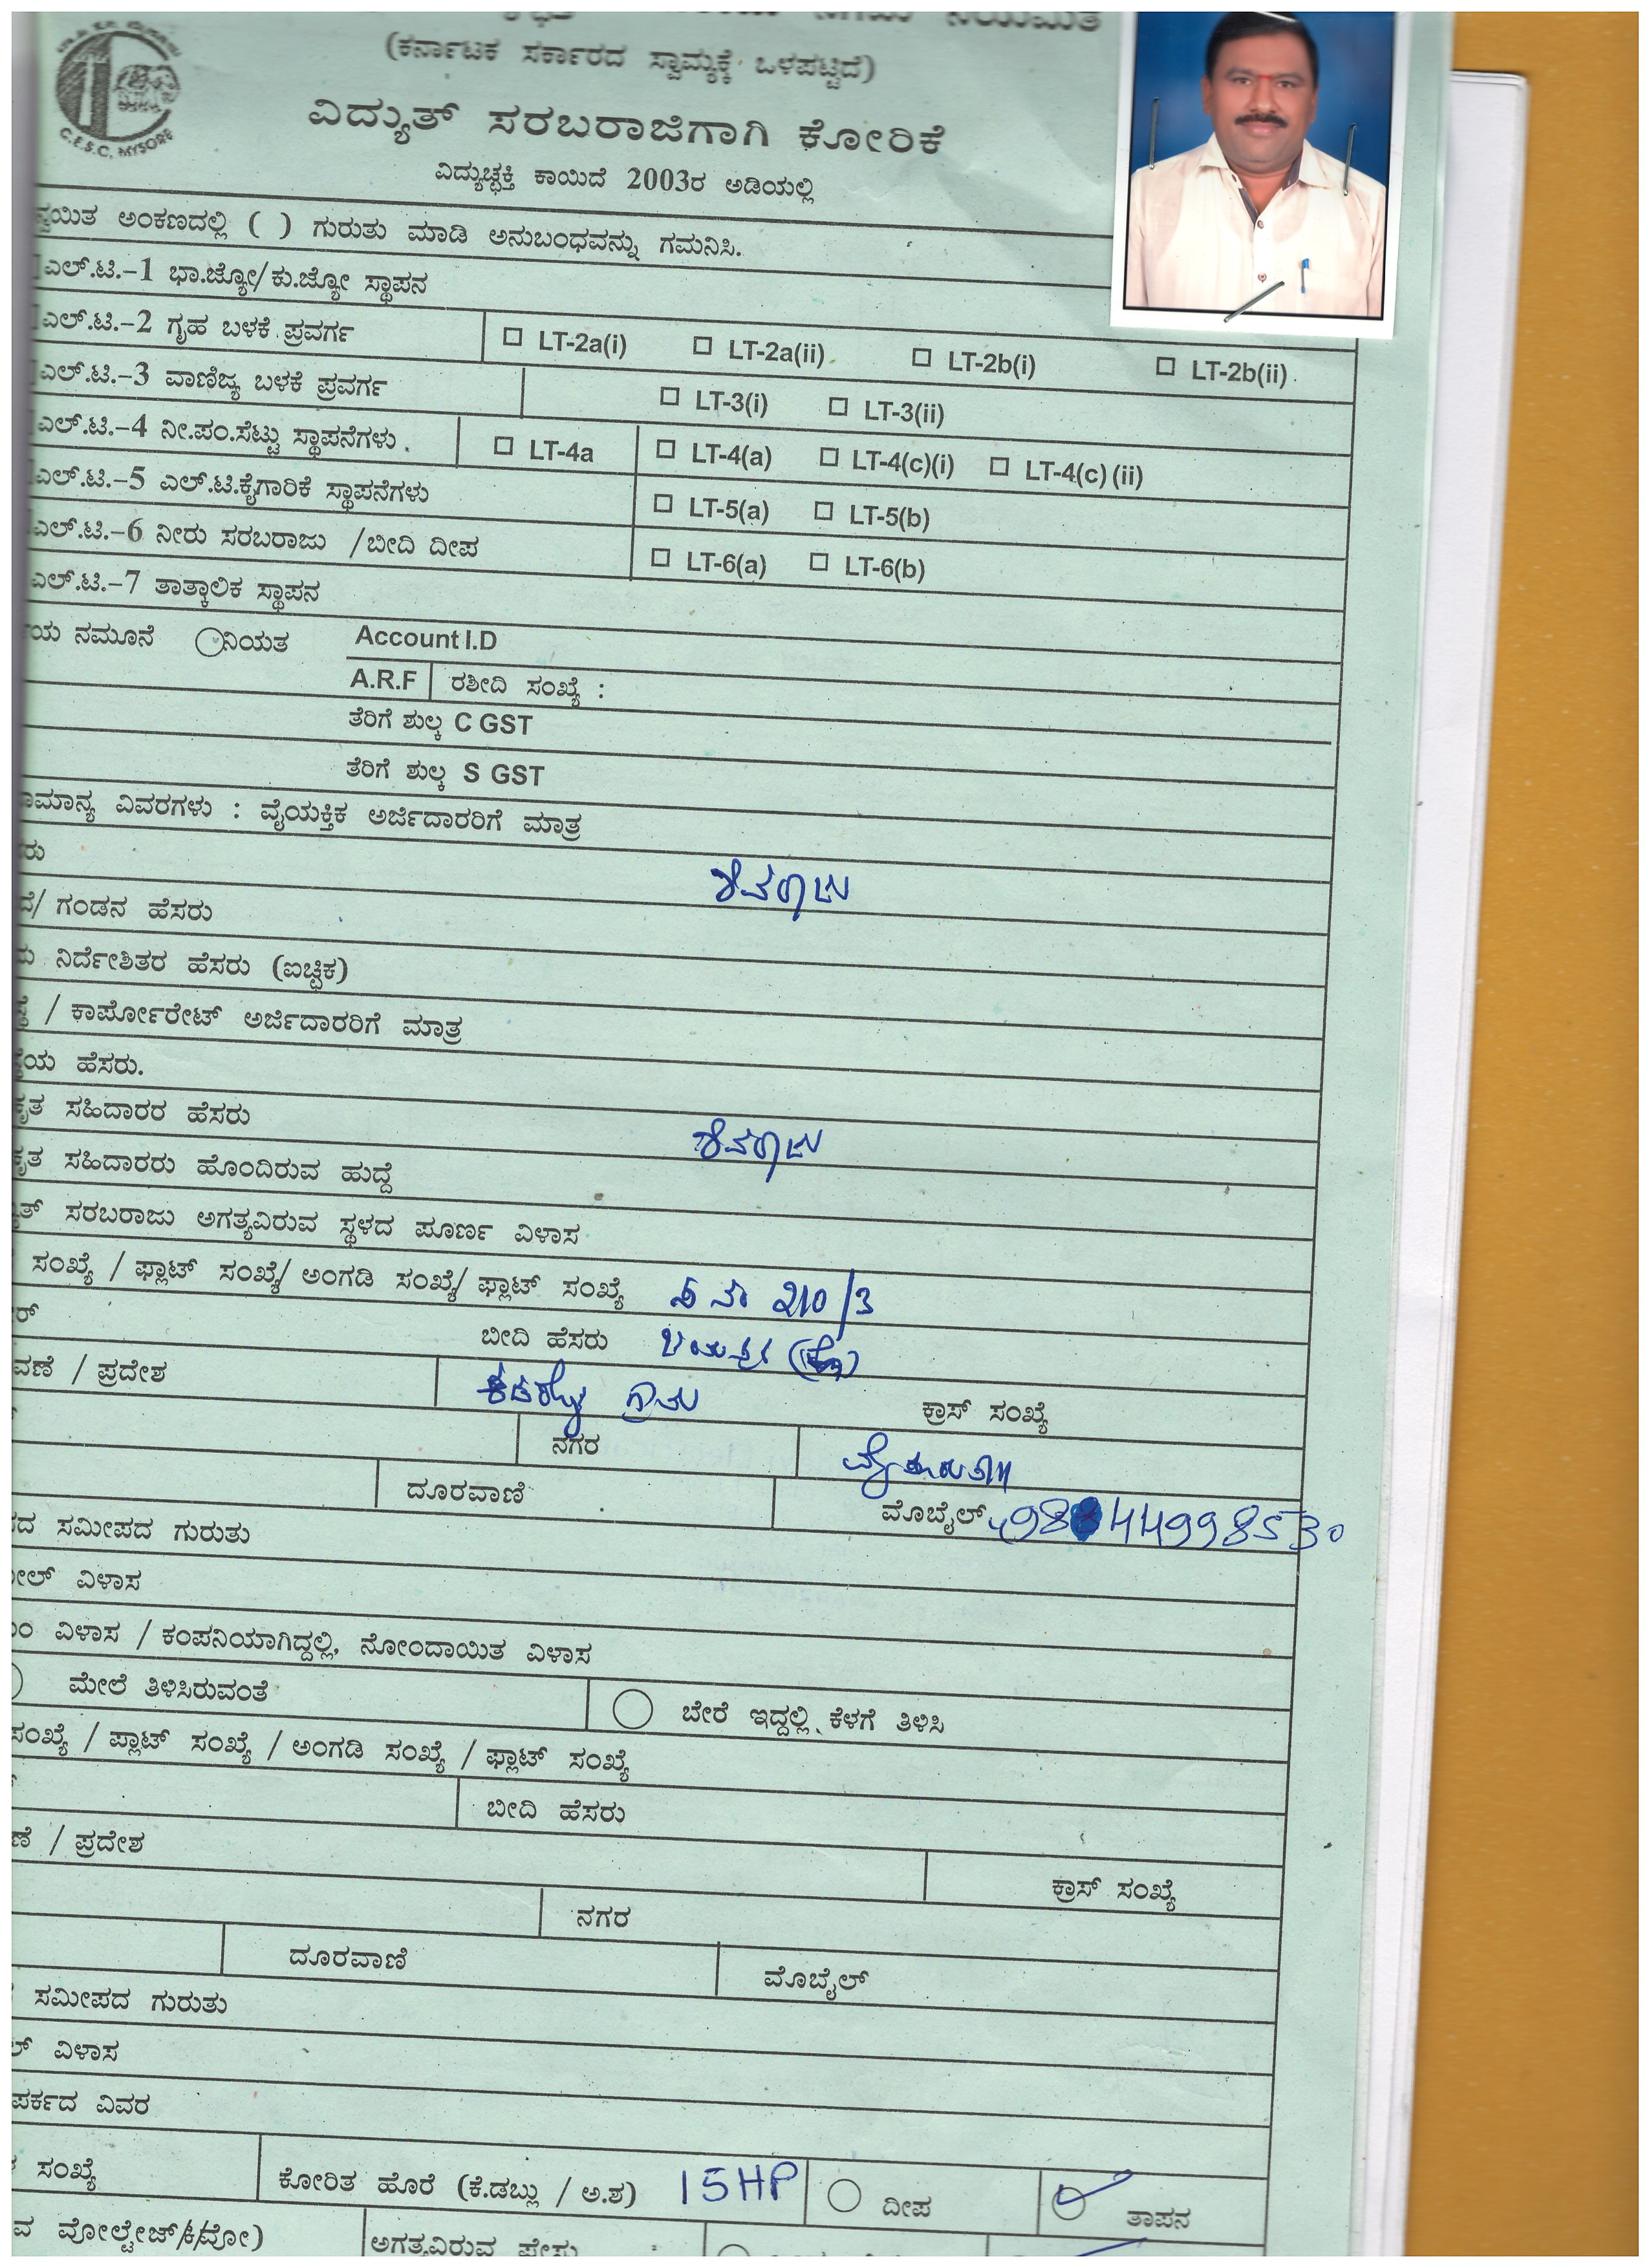 (ಕರ್ನಾಟಕ ಸರ್ಕಾರದ ಸ್ವಾಮ್ಯಕ್ಕೆ ಒಳಪಟ್ಟಿದೆ)
C.E.S.C. MYSORE
ವಿದ್ಯುತ್ ಸರಬರಾಜಿಗಾಗಿ ಕೋರಿಕೆ
ವಿದ್ಯುಚ್ಛಕ್ತಿ ಕಾಯಿದೆ 2003ರ ಅಡಿಯಲ್ಲಿ
ನ್ವಯಿತ ಅಂಕಣದಲ್ಲಿ ( ) ಗುರುತು ಮಾಡಿ ಅನುಬಂಧವನ್ನು ಗಮನಿಸಿ.
ಎಲ್.ಟಿ.-1 ಭಾ.ಜ್ಯೋ/ಕು.ಜ್ಯೋ ಸ್ಥಾಪನ
ಎಲ್.ಟಿ.-2 ಗೃಹ ಬಳಕೆ ಪ್ರವರ್ಗ □ LT-2a(i) □ LT-2a(ii) □ LT-2b(i) □ LT-2b(ii)
ಎಲ್.ಟಿ.-3 ವಾಣಿಜ್ಯ ಬಳಕೆ ಪ್ರವರ್ಗ □ LT-3(i) □ LT-3(ii)
ಎಲ್.ಟಿ.-4 ನೀ.ಪಂ.ಸೆಟ್ಟು ಸ್ಥಾಪನೆಗಳು . □ LT-4a □ LT-4(a) □ LT-4(c)(i) □ LT-4(c) (ii)
ಎಲ್.ಟಿ.-5 ಎಲ್.ಟಿ.ಕೈಗಾರಿಕೆ ಸ್ಥಾಪನೆಗಳು □ LT-5(a) □ LT-5(b)
ಎಲ್.ಟಿ.-6 ನೀರು ಸರಬರಾಜು /ಬೀದಿ ದೀಪ □ LT-6(a) □ LT-6(b)
ಎಲ್.ಟಿ.-7 ತಾತ್ಕಾಲಿಕ ಸ್ಥಾಪನ
ಯ ನಮೂನೆ ನಿಯತ Account I.D
A.R.F ರಶೀದಿ ಸಂಖ್ಯೆ :
ತೆರಿಗೆ ಶುಲ್ಕ C GST
ತೆರಿಗೆ ಶುಲ್ಕ S GST
ಾಮಾನ್ಯ ವಿವರಗಳು : ವೈಯಕ್ತಿಕ ಅರ್ಜಿದಾರರಿಗೆ ಮಾತ್ರ
ರು ಶಿವರಾಜು
ದೆ/ ಗಂಡನ ಹೆಸರು
ನಿರ್ದೇಶಿತರ ಹೆಸರು (ಐಚ್ಛಿಕ)
/ ಕಾರ್ಪೋರೇಟ್ ಅರ್ಜಿದಾರರಿಗೆ ಮಾತ್ರ
ಯ ಹೆಸರು.
ಕೃತ ಸಹಿದಾರರ ಹೆಸರು ಶಿವರಾಜು
ಕೃತ ಸಹಿದಾರರು ಹೊಂದಿರುವ ಹುದ್ದೆ
ತ್ ಸರಬರಾಜು ಅಗತ್ಯವಿರುವ ಸ್ಥಳದ ಪೂರ್ಣ ವಿಳಾಸ
ಸಂಖ್ಯೆ / ಫ್ಲಾಟ್ ಸಂಖ್ಯೆ/ ಅಂಗಡಿ ಸಂಖ್ಯೆ/ ಫ್ಲಾಟ್ ಸಂಖ್ಯೆ ಸ ನಂ 210/3
ರ್ ಬೀದಿ ಹೆಸರು
ವಣೆ / ಪ್ರದೇಶ ಗ್ರಾಮ ಕ್ರಾಸ್ ಸಂಖ್ಯೆ
ನಗರ
ದೂರವಾಣಿ ಮೊಬೈಲ್
ದ ಸಮೀಪದ ಗುರುತು
ಲ್ ವಿಳಾಸ
ಂ ವಿಳಾಸ / ಕಂಪನಿಯಾಗಿದ್ದಲ್ಲಿ, ನೋಂದಾಯಿತ ವಿಳಾಸ
ಮೇಲೆ ತಿಳಿಸಿರುವಂತೆ ಬೇರೆ ಇದ್ದಲ್ಲಿ ಕೆಳಗೆ ತಿಳಿಸಿ
ಸಂಖ್ಯೆ / ಪ್ಲಾಟ್ ಸಂಖ್ಯೆ / ಅಂಗಡಿ ಸಂಖ್ಯೆ / ಫ್ಲಾಟ್ ಸಂಖ್ಯೆ
ಬೀದಿ ಹೆಸರು
ಣೆ / ಪ್ರದೇಶ ಕ್ರಾಸ್ ಸಂಖ್ಯೆ
ನಗರ
ದೂರವಾಣಿ ಮೊಬೈಲ್
ಸಮೀಪದ ಗುರುತು
ಲ್ ವಿಳಾಸ
ಪರ್ಕದ ವಿವರ
ಸಂಖ್ಯೆ ಕೋರಿತ ಹೊರೆ (ಕೆ.ಡಬ್ಲು / ಅ.ಶ) 15HP ದೀಪ ತಾಪನ
ವ ವೋಲ್ಟೇಜ್ ಅಗತ್ಯವಿರುವ ಫೇಸು